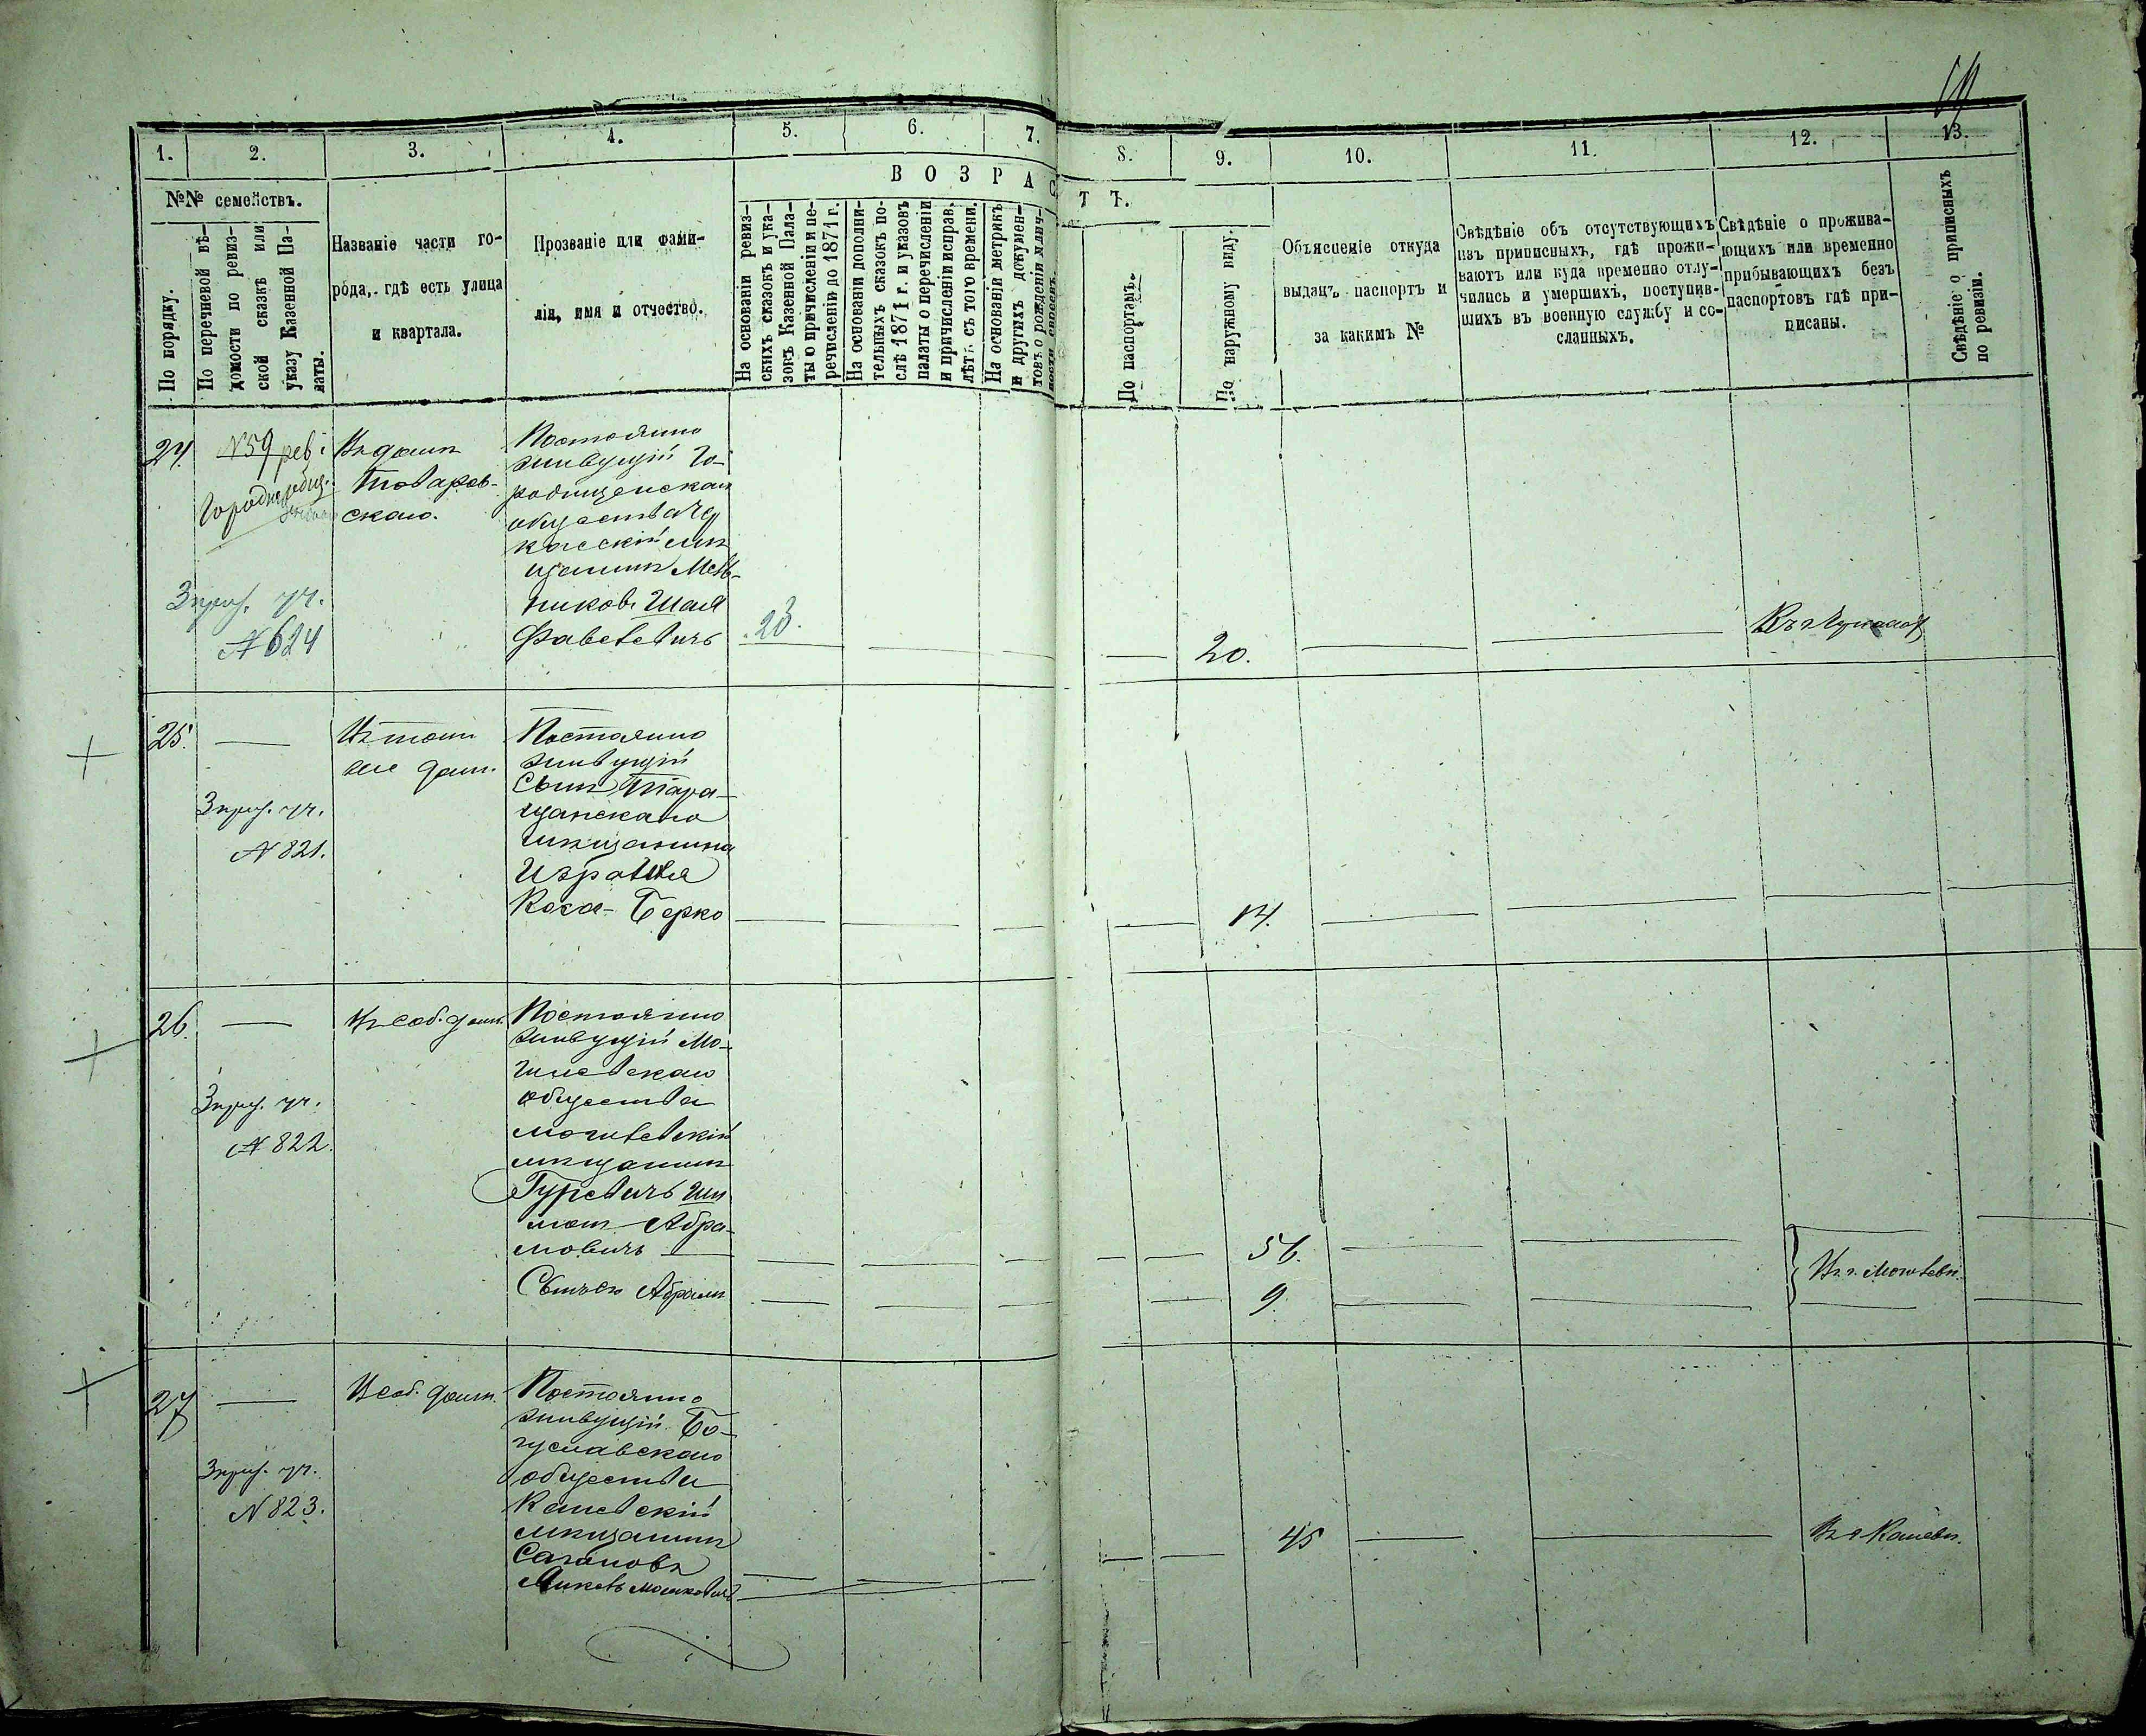 1.
2.
3.
4.
5.
6.
7.
8.
9.
10.
11.
12.
13.
№№ семействъ.
По порядку.
По перечневой вѣ-
домости по ревиз-
ской сказкѣ или
указу Казенной Па-
латы.
Названіе части го-
рода, гдѣ есть улица
и квартала.
Прозваніе или фами-
лія, имя и отчество.
ВОЗРАСТЪ.
На основаніи ревиз-
скихъ сказокъ и ука-
зовъ Казенной Пала-
ты о причисленіи и пе-
речисленіи до 1871 г.
На основаніи дополни-
тельныхъ сказокъ по-
слѣ 1871 г. и указовъ
палаты о перечисленіи
и причисленіи исправ.
лѣтъ съ того времени.
На основаніи метрикъ
и другихъ докумен-
товъ о рожденіи и лич-
ности евреевъ.
По паспортамъ.
По наружному виду.
Объясненіе откуда
выданъ паспортъ и
за какимъ №
Свѣдѣніе объ отсутствующихъ
изъ приписныхъ, гдѣ прожи-
ваютъ или куда временно отлу-
чились и умершихъ, поступив-
шихъ въ военную службу и со-
сланныхъ.
Свѣдѣніе о прожива-
ющихъ или временно
прибывающихъ безъ
паспортовъ гдѣ при-
писаны.
Свѣдѣніе о приписныхъ
по ревизіи.
24.
N 59 рев.
Въ домѣ
Товаров-
скаго.
Постоянно
живущій Го-
родищенскаго
общества Чер
касскій мѣ
щанинъ Мель-
никовъ Шая
23.
20.
N 624
25.
Въ томъ
же домѣ.
Постоянно
живущій
Сынъ Тара-
щанскаго
мѣщанина
Израиля
Коган Берко
14.
N 821.
26.
Въ соб. домѣ.
Постоянно
живущій Мо-
гилевскаго
общества
могилевскій
мѣщанинъ
Гуревичъ Ши
мон Абра-
мовичъ
56.
Сынъ его Абрамъ
9.
Въ г. Могилевѣ.
N 822.
27
В соб. домѣ.
Постоянно
живущій Бо-
гуславскаго
общества
Каневскій
мѣщанинъ
Сагановъ
Мошковичъ
45
Въ г. Каневѣ.
N 823.